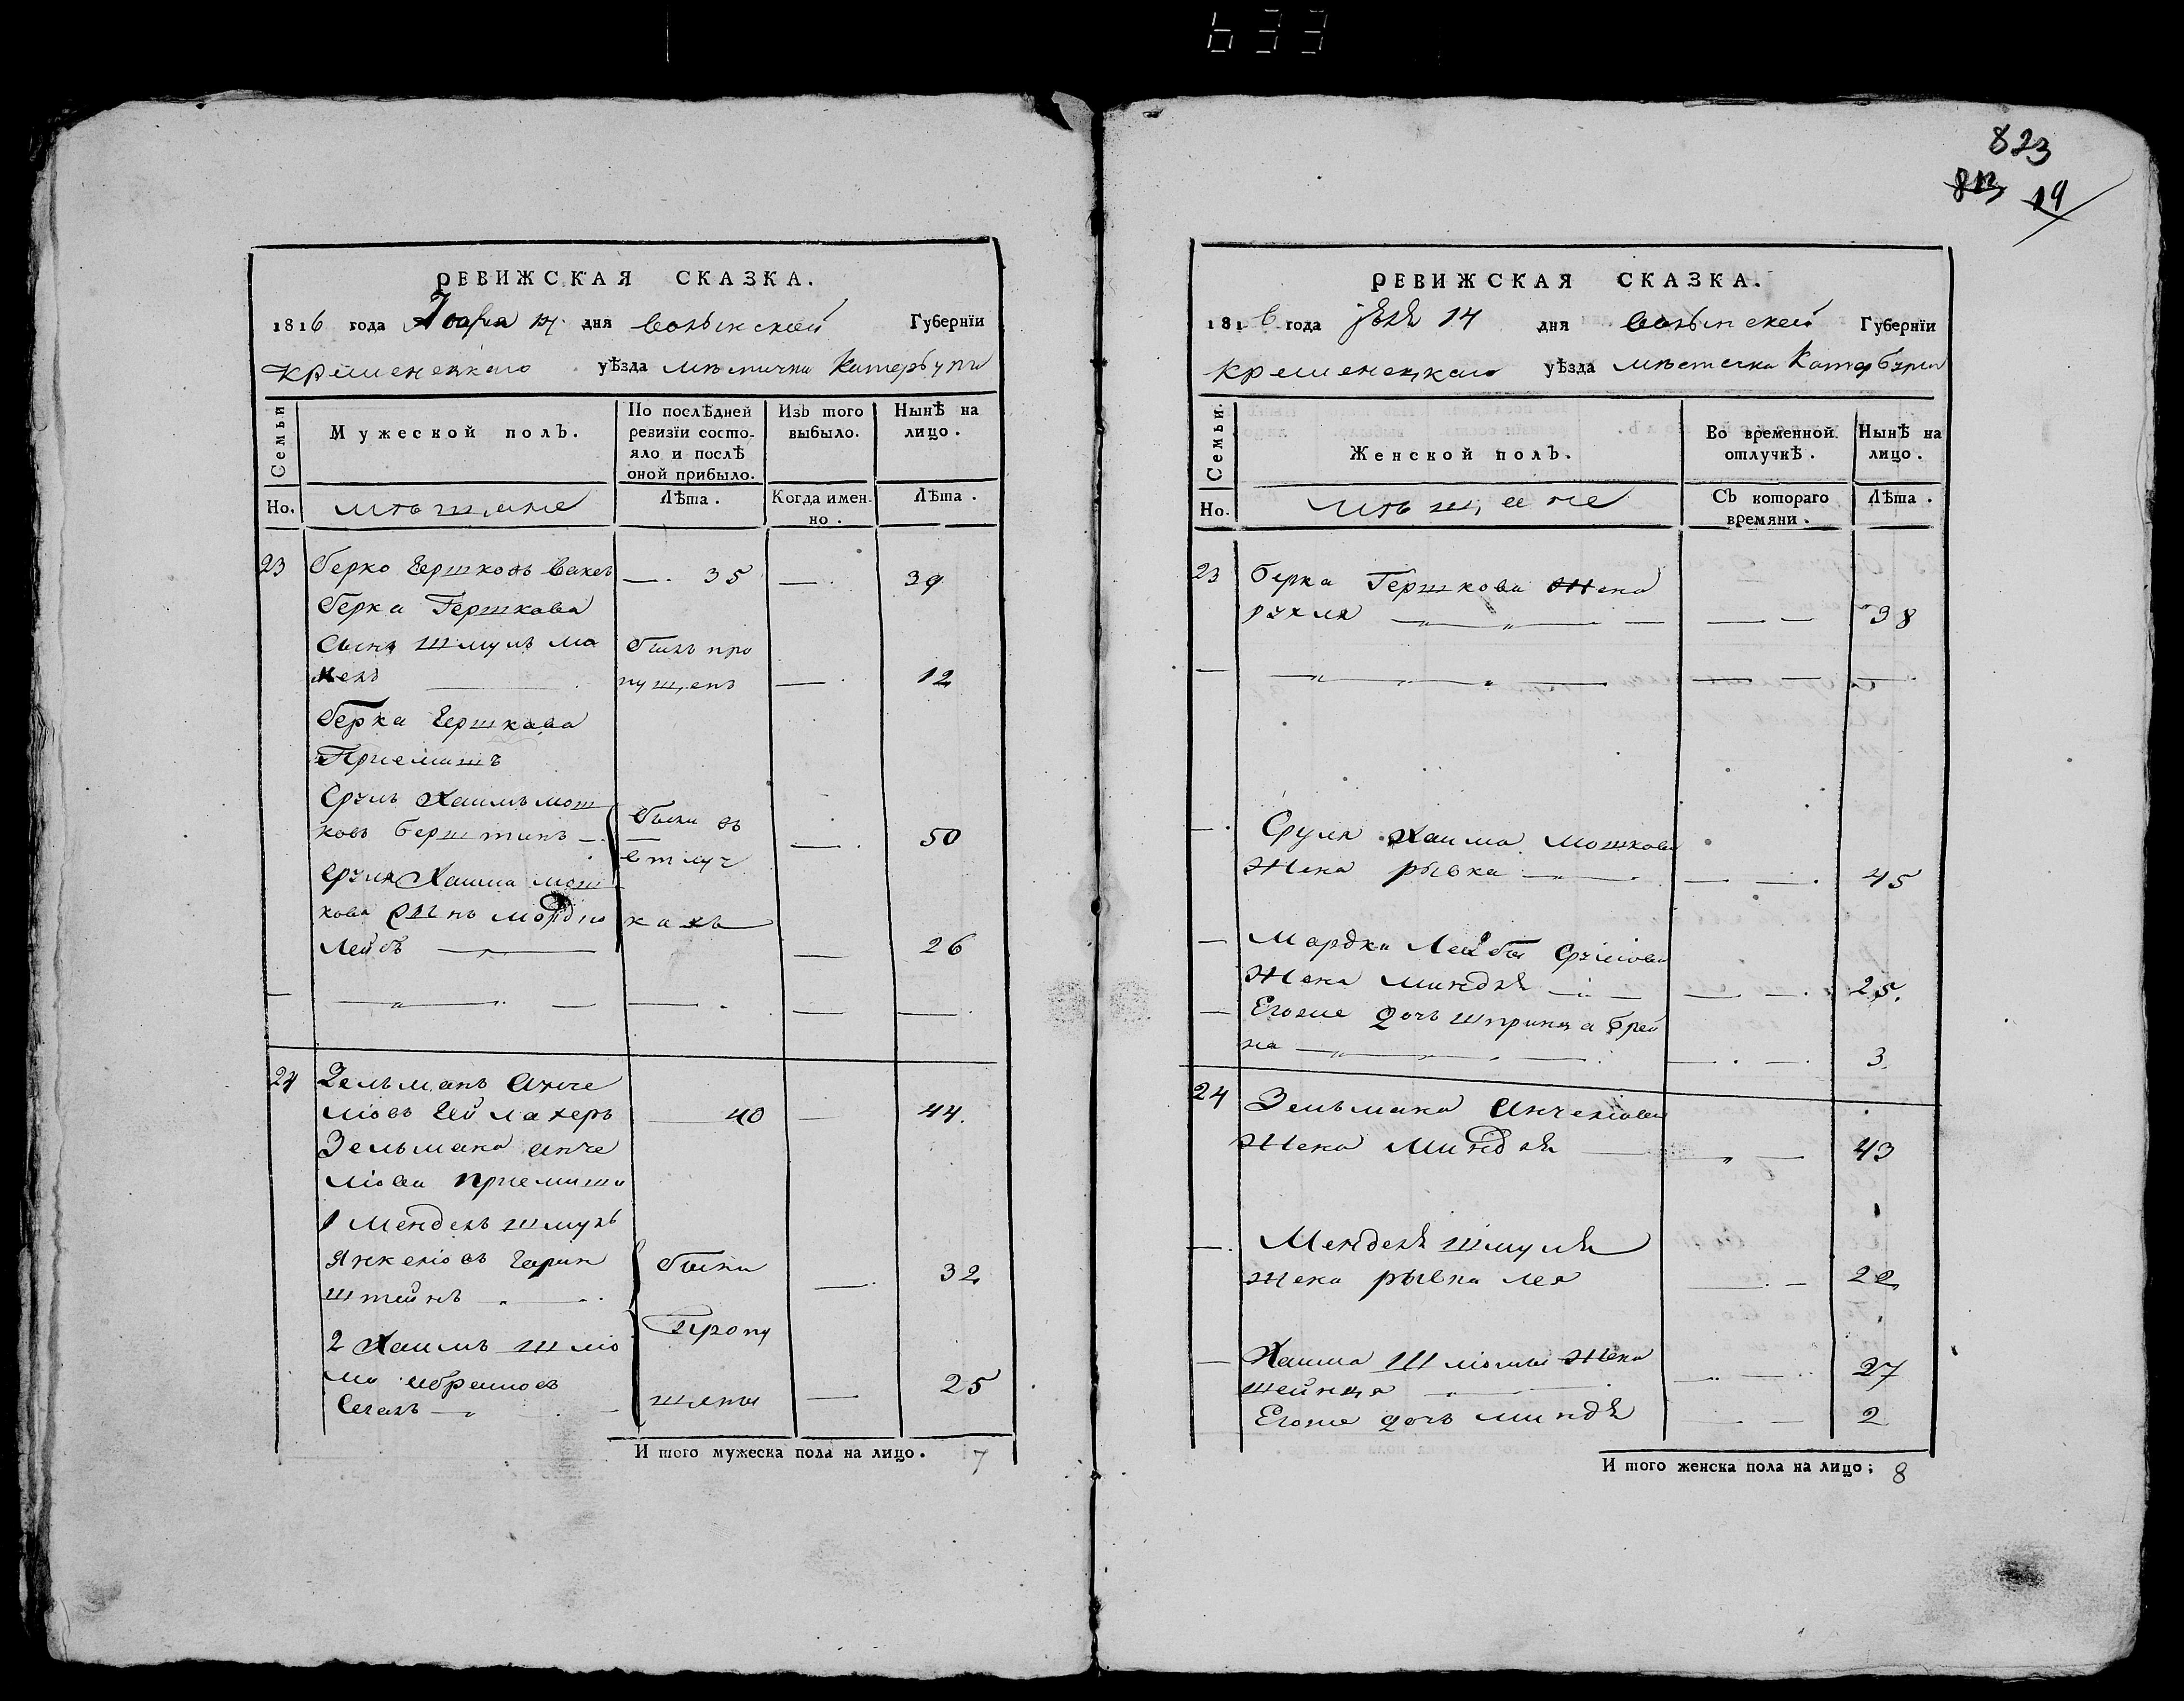 633
823
813 19
РЕВИЖСКАЯ СКАЗКА.
1816 года дня волынской Губернїи
Кременецкаго уѣзда мѣстичка Катербурга
Семьи
Мужеской полЪ.
По послѣдней ревизїи состояло и послѣ оной прибыло.
ИзЪ того выбыло.
Нынѣ на лицо.
Но.
мѣщане
Лѣта.
Когда именно.
Лѣта.
23 Берко Гершковъ — 35 — 39
Берка Гершкова
Сынъ Шмуль Мо былъ про
пущенъ — 12
Берка Гершкова
Приемышъ
Сруль Хаимъ Мош
ковъ Берштинъ — были въ — 50
отлуч
Сруля Хаима Мош
кова сынъ Мордко кахъ
Лейбъ — 26
24 Зельманъ Анче
ліовъ Гейлахеръ 40 — 44.
Зельмана Анче
ліова приемыши
1 Мендель Шмуль
Янкеліовъ были — 32
штейнъ
2 Хаимъ Шліо пропу
ма Абрамовъ — 25
щены
И того мужеска пола на лицо. 7
РЕВИЖСКАЯ СКАЗКА.
1816 года 14 дня волынской Губернїи
кременецкаго уѣзда мѣстечка Катербурга
Семьи.
Женской полЪ.
Во временной отлучкѣ.
Нынѣ на лицо.
Но.
мѣщане
СЪ котораго времяни.
Лѣта.
23 Берка Гершкова жена
рухля — — 38
Сруля Хаима Мошкова
жена рывка — — 45
Мордки Лейбы Сруліова
жена миндля — — 25.
Егоже дочь шпринца брей
на — — 3.
24 Зельмана Анчеліова
жена Миндля — 43
Менделя Шмуля
жена рывка лея — 22
Хаима Шліомы жена
шейнця — 27
Егоже дочь миндя — 2
И того женска пола на лицо; 8